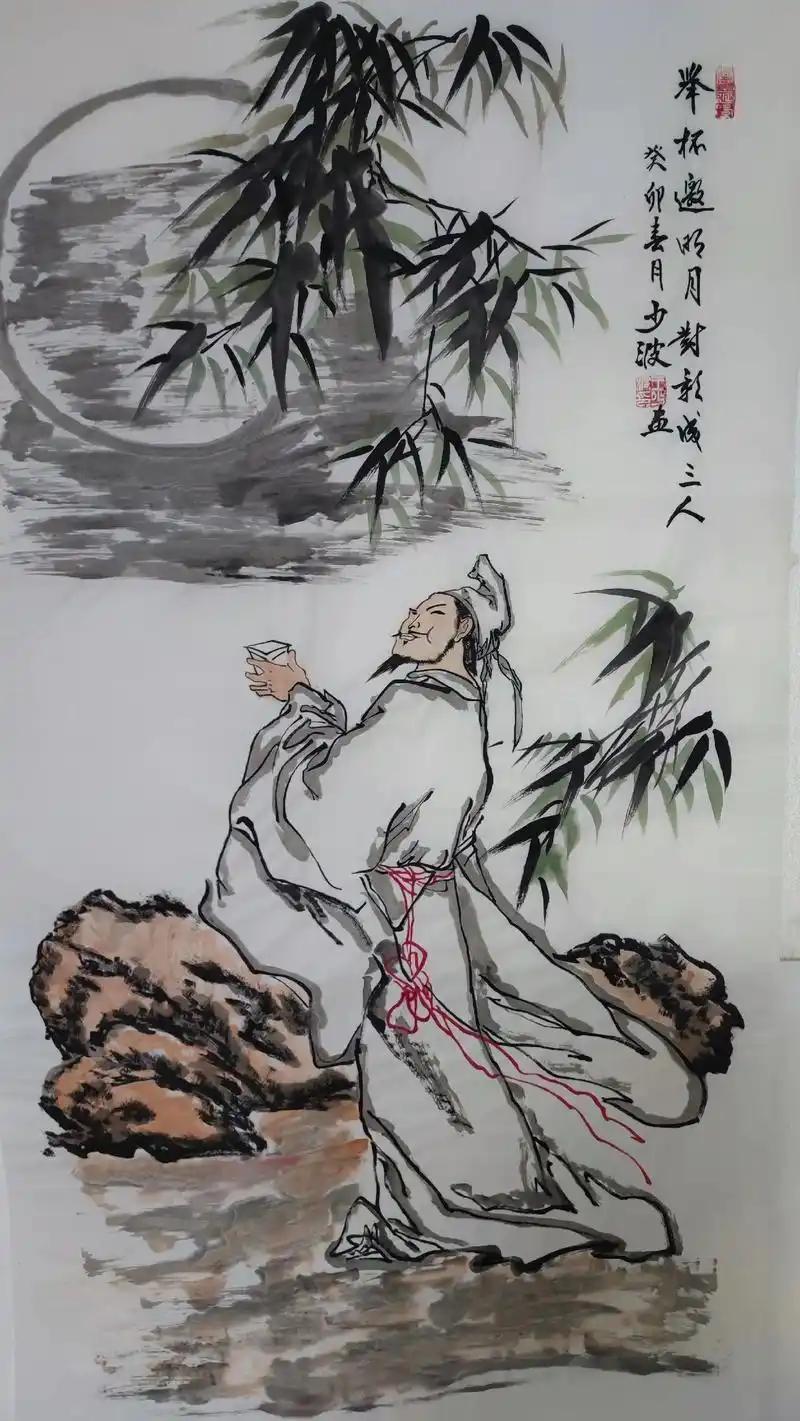 举杯邀明月對影成三人
癸卯春月少波画